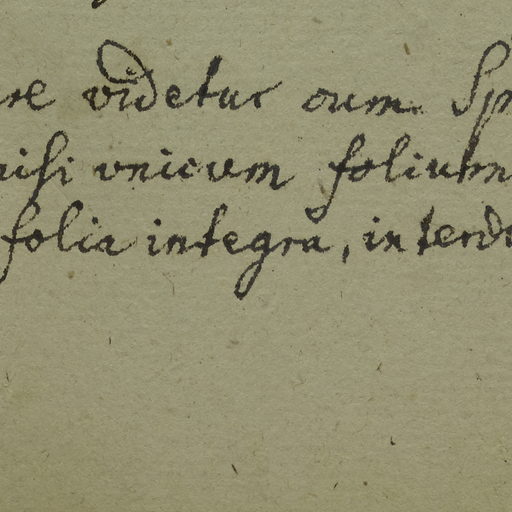 re videtur cum Sp
nisi vnicum folium
folia integra, interdu